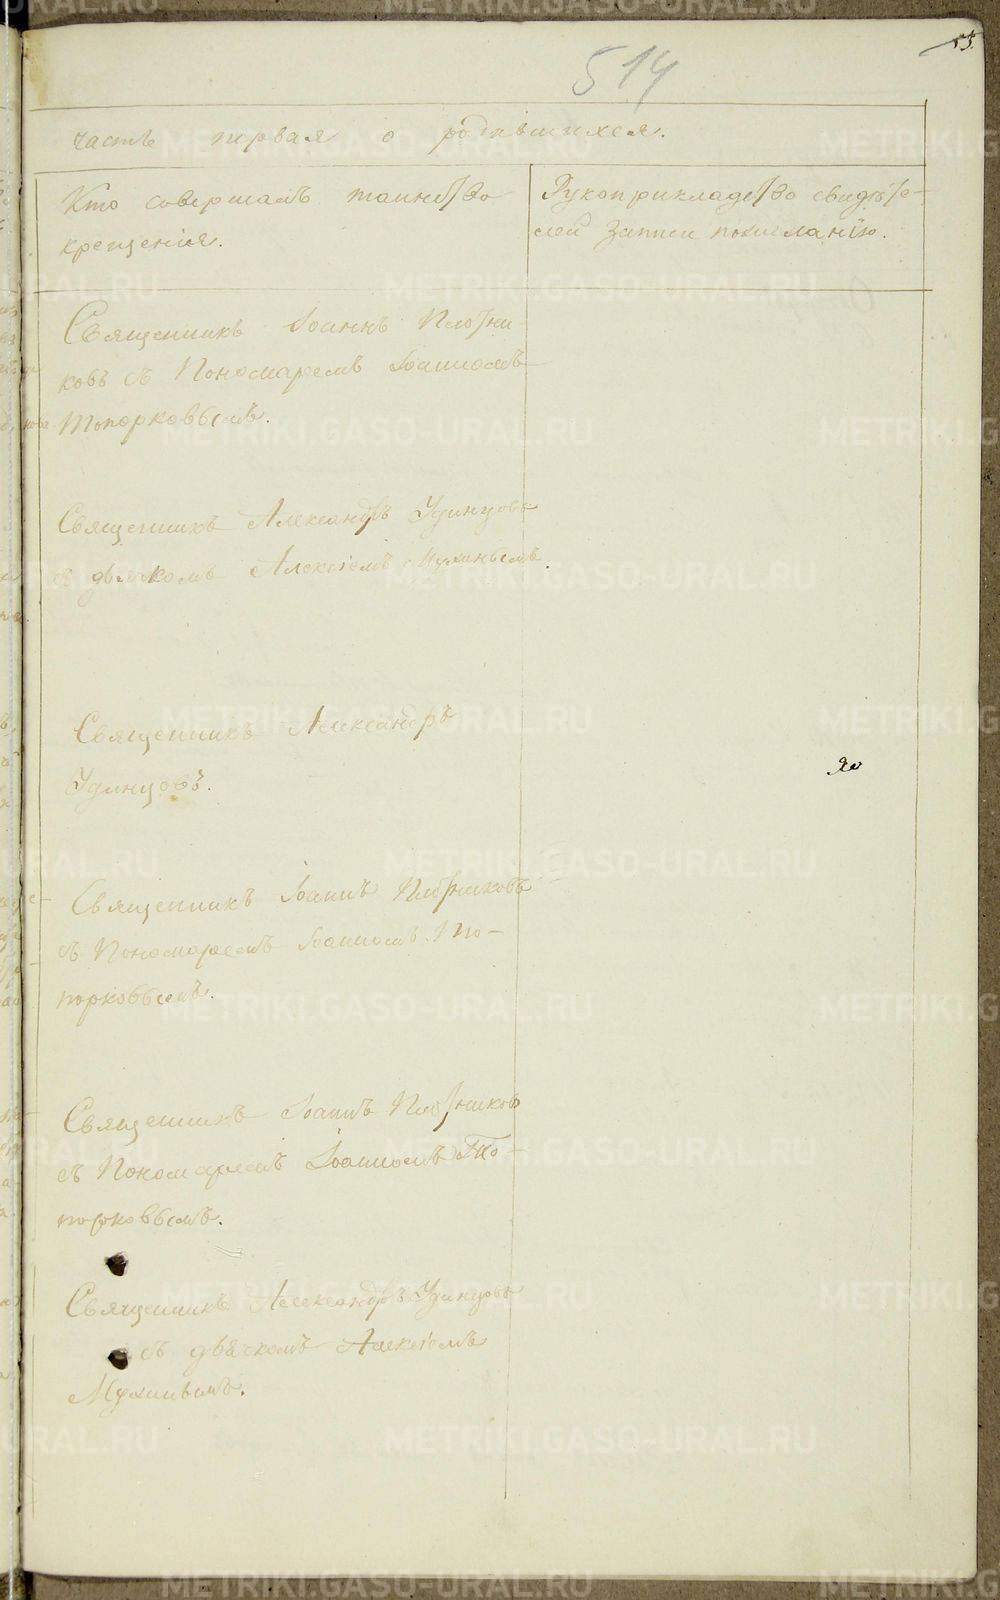 514
53.
часть первая о родившихся.
Кто совершалъ таинство
крещенія.
Рукоприкладство свидѣте-
лей записи по желанію.
Священникъ Іоаннъ Плотни-
ковъ съ Пономаремъ Іоанномъ
Топорковымъ.
Священникъ Александръ Удинцовъ
съ дьячкомъ Алексіемъ Мухинымъ.
Священникъ Александръ
Удинцовъ.
Священникъ Іоаннъ Плотниковъ
съ Пономаремъ Іоанномъ То-
порковымъ.
Священникъ Іоаннъ Плотниковъ
съ Пономаремъ Іоанномъ То-
порковымъ.
Священникъ Александръ Удинцовъ
съ дьячкомъ Алексіемъ
Мухинымъ.
METRIKI.GASO-URAL.RU